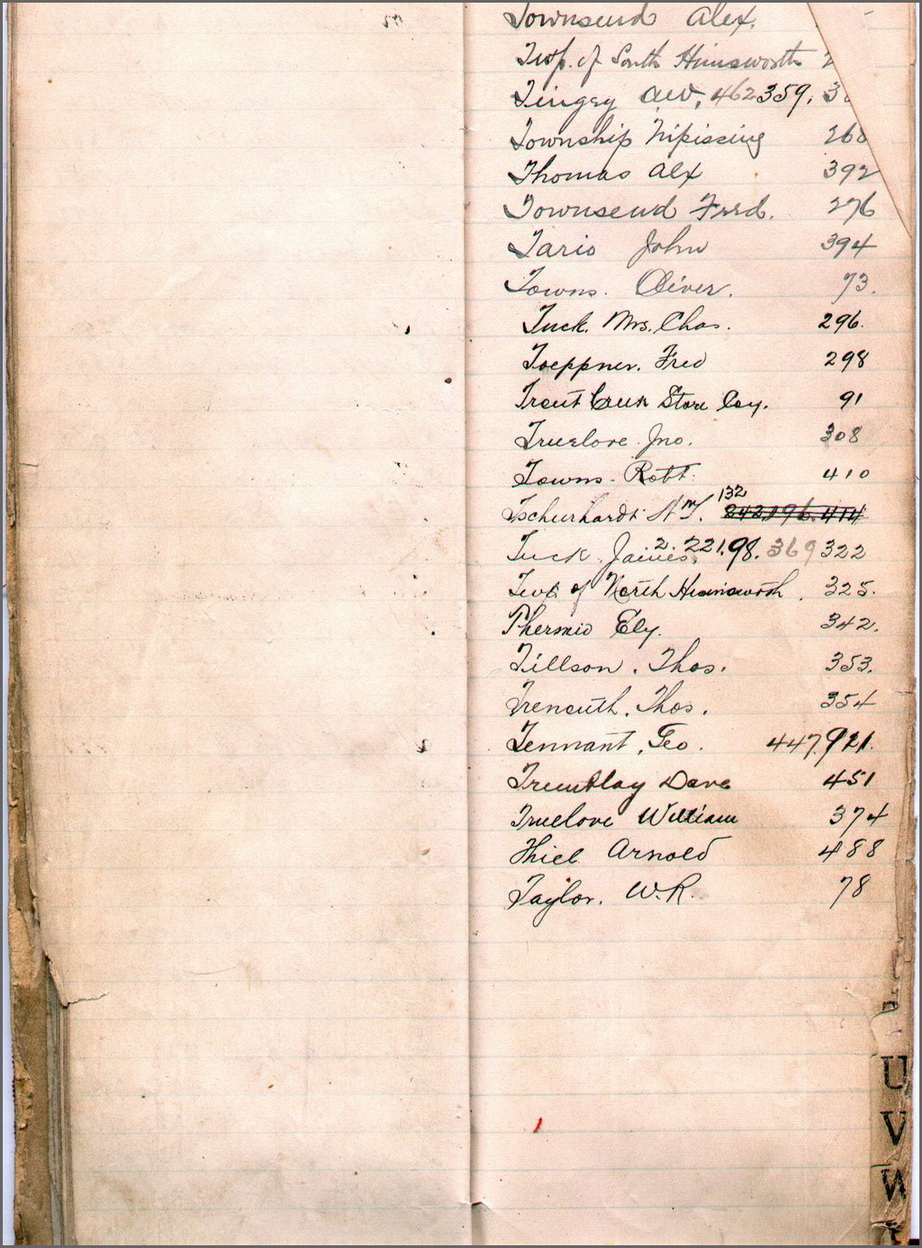 Townsend Alex.
Twp. of South Himsworth
Tingey AW, 462 359, 3
Township Nipissing 268
Thomas Alex 392
Townsend Fred. 276
Tario John 394
Towns. Oliver. 73.
Tuck. Mrs. Chas. 296.
Toeppner. Fred 298
Trout Creek Store Coy. 91
Truelove. Jno. 308
Towns. Robt. 410
132
Tschurhardt 
Tuck. James. 2. 221. 98. 369 322
Twp of North Himsworth. 325.
Ely. 342.
Tillson. Thos. 353.
Trenouth. Thos. 354
Tennant, Geo. 447, 921.
Tremblay Dave 451
Truelove William 374
Thiel Arnold 488
Taylor. W.R. 78
U
V
W